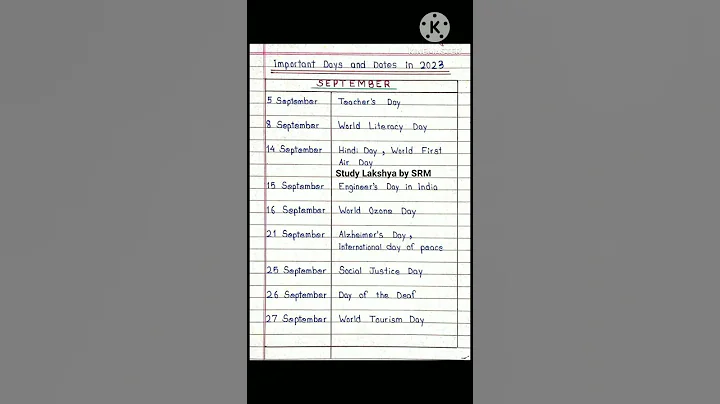 K
KINEMASTER
Important Days and Dates in 2023
SEPTEMBER
5 September Teacher's Day
8 September World Literacy Day
14 September Hindi Day, World First
Air Day
Study Lakshya by SRM
15 September Engineer's Day in India
16 September World Ozone Day
21 September Alzheimer's Day,
International day of peace
25 September Social Justice Day
26 September Day of the Deaf
27 September World Tourism Day